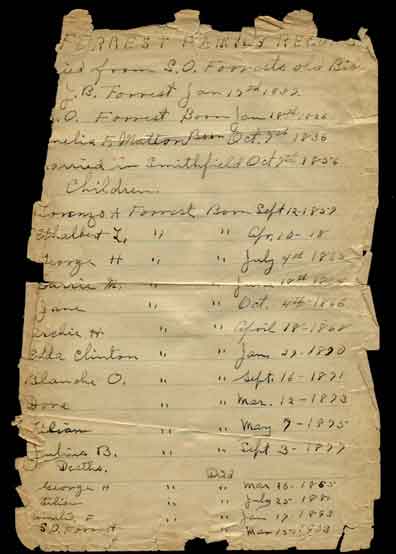 FORREST FAMILY RECORD
ied from S.O. Forrests old Bib
J.B. Forrest Jan 15th
S.O. Forrest Born Jan 18th
melia F Matton Born Oct. 7th 1836
arried in Smithfield Oct 7th 1856
Children.
Lorenzo A Forrest, Born Sept 12-1857
Ethelbert L. " " Apr. 10-18
George H " " July 4th
Carrie M. " "
Jane " " Oct. 4th-1866
Archie H. " " April 18-1868
Ella Clinton " " Jan 27-1870
Blanche O. " " Sept. 16-1871
Dora " " Mar. 12-1873
Lilian " " May 7-1875
Julius B. " " Sept 3-1877
Deaths. Died
George H " " Mar 26-1865
Lilian " " July 25
melia F " " Jan 17 1893
S.O. Forrest " " Mar 15